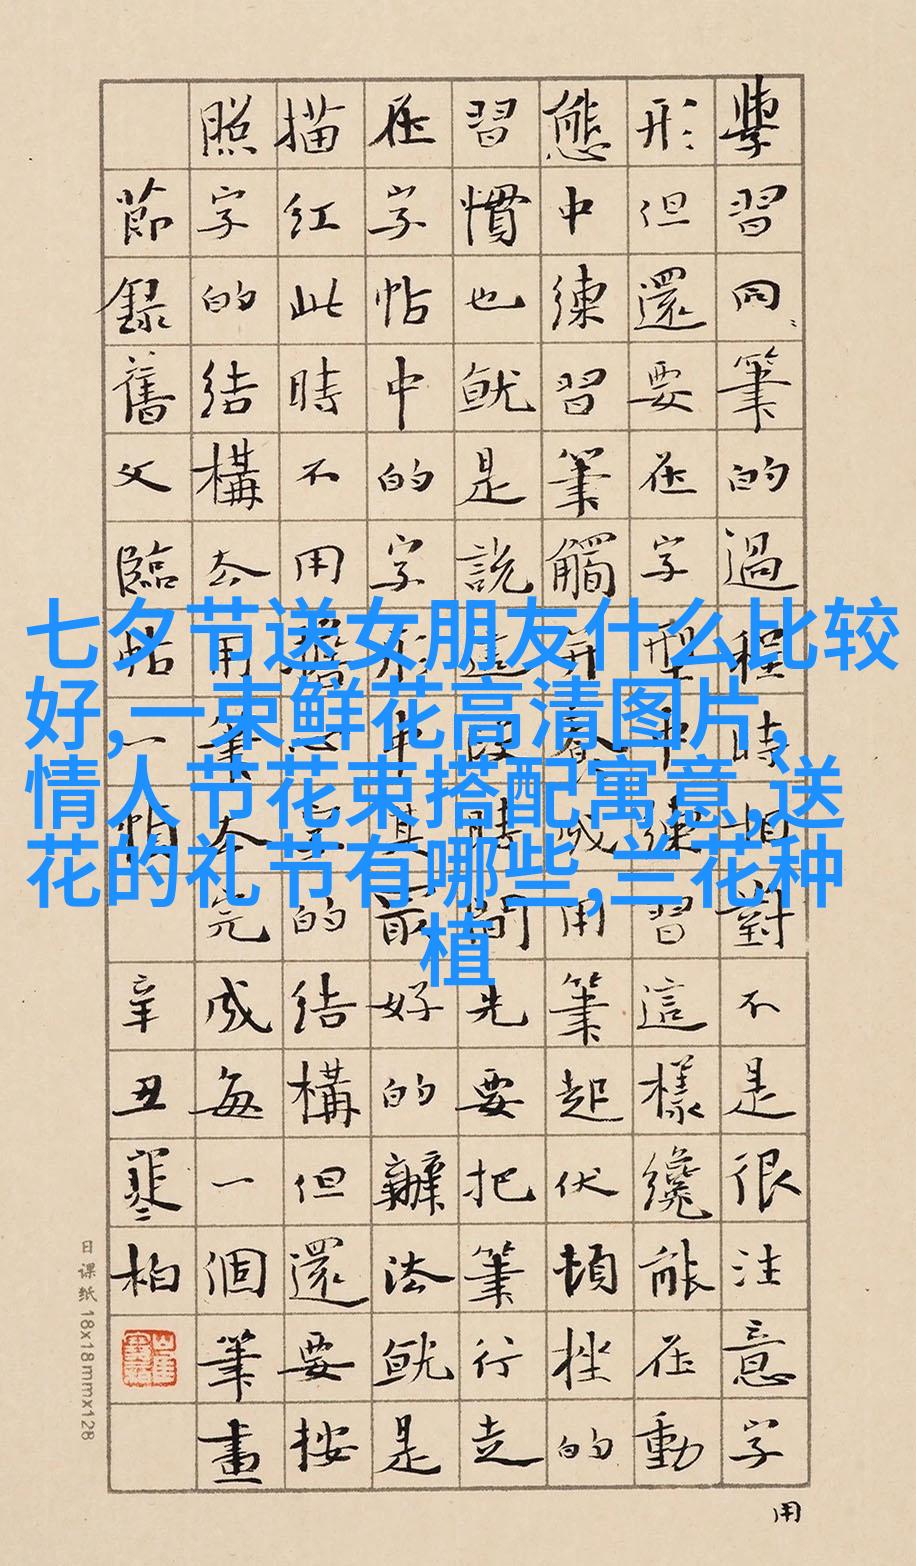 七夕节送女朋友什么比较
好,一束鲜花高清图片,
情人节花束搭配寓意,送
花的礼节有哪些,兰花种
植
學習同筆的過程時相對不是很注意字
形但還要在字型中練習這樣纔能在動
態中練習筆觸并養成用筆起伏頓挫的
習慣也就是說這段時間先要把筆行走
在字帖中的字形中其最好的辦法就是
描紅此時不用心字的結構但還要按
照字的結構去用筆去完成每一個筆畫
節錄舊文臨帖一幀 辛丑寒柏
用
日课纸 18x18mmx128